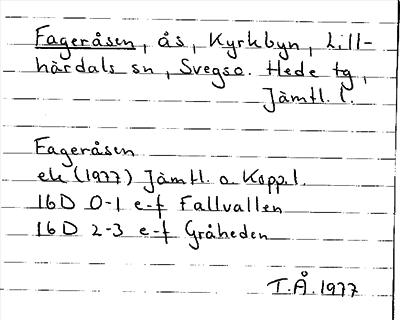 Fageråsen, ås, Kyrkbyn, Lill-
härdals sn, Svegs o. Hede tg,
Jämtl. l.
Fageråsen
ek (1977) Jämtl. o Koppl.
16D 0-1 e-f Fallvallen
16D 2-3 e-f Gråheden
T.Å. 1977